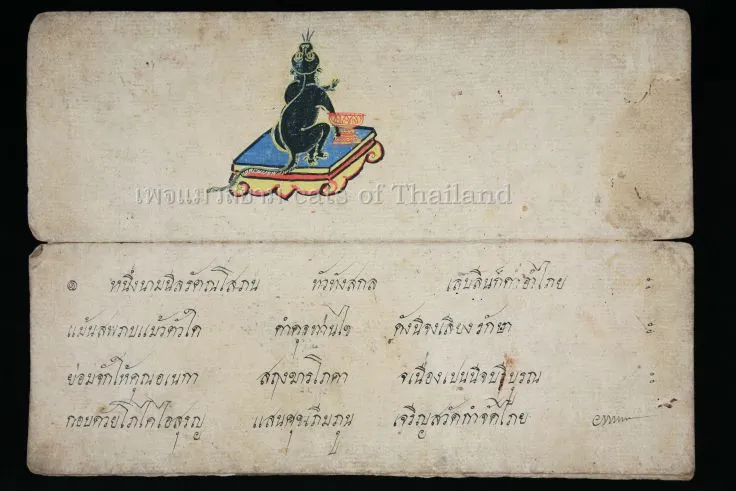 เพจแมวไทย cats of Thailand
๏ หนึ่งนามนิลรัตนโสภณ ทั่วทังสกล เล็บลิ้นก็ดำอำไภย
แม้นสพภบแม้วตัวใด คำครูท่านไข ดังนี้จงเลี้ยงรักษา
ย่อมจักให้คุณอเนกา สฤงฆารโภคา จเนื่องเปนนิจบริบูรณ
กอบด้วยโภไคไอสุรญ แสนคุณภิมภูน เจริญสวัดกำจัดไภย